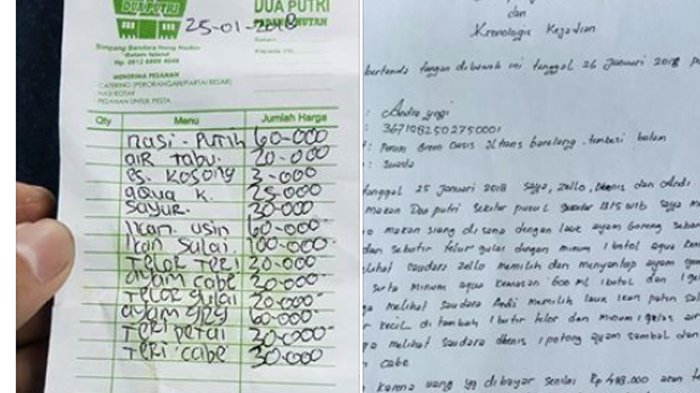 DUA PUTRI
DUA PUTRI
25-01-2018
Simpang Bandara Hang Nadim
Batam Island
Hp. 0812 6669 4049
MENERIMA PESANAN
CATERING (PERORANGAN/PARTAI BESAR)
NASI KOTAK
PESANAN UNTUK PESTA
Qty Menu Jumlah Harga
nasi - putih 60-000
air tabu. 20-000
es. kosong 3-000
aqua k. 25-000
sayur. 30-000
Ikan. usin 60-000
Ikan Sulai 100-000
Telor Teri 30-000
ayam cabe 30-000
Telor gulai 20-000
ayam 60-000
Teri petai 30-000
Teri cabe 30-000
dan
Kronologis Kejadian
bertanda tangan dibawah ini tanggal 26 Januari 2018
: Andra yogi
: 3671082502750001
: Perum Green Oasis Jl trans barelang - tembesi batam
: Swasta
tanggal 25 Januari 2018 Saya, Zello, Dennis dan Andi
makan Dua putri sekitar pukul 13.15 WIB saya
makan siang di sana dengan lauk ayam goreng
dan sebutir telur gulai dengan minum 1 botol aqua
saudara zello memilih dan menyantap ayam
serta minum aqua kemasan 600 ml 1 botol dan 1
melihat saudara Andi memilih lauk ikan patin
kecil di tambah 1 butir telor dan minum 1 gelas air
melihat saudara dennis 1 potong ayam sambal dan
cabe
karena uang yg dibayar senilai Rp 498.000